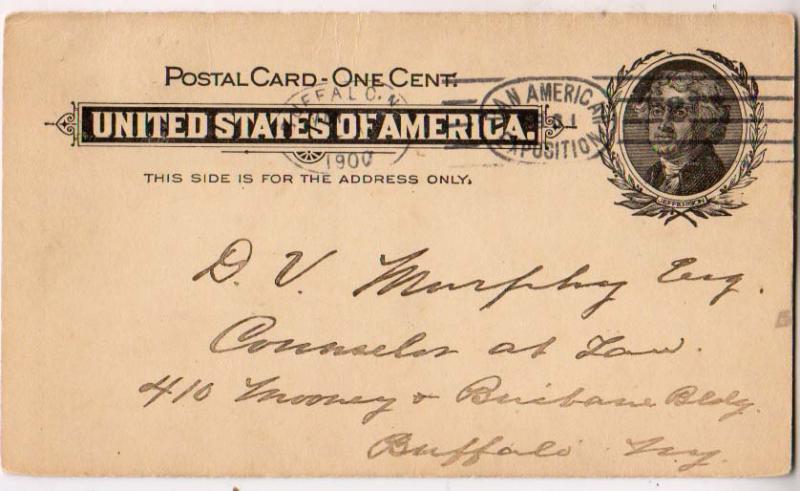 POSTAL CARD - ONE CENT.
UNITED STATES OF AMERICA.
THIS SIDE IS FOR THE ADDRESS ONLY.
BUFFALO, N.
1900
PAN AMERICAN
EXPOSITION
JEFFERSON
D. V. Murphy Esq.
Counselor at Law.
410 Mooney & Brisbane Bldg.
Buffalo N.y.